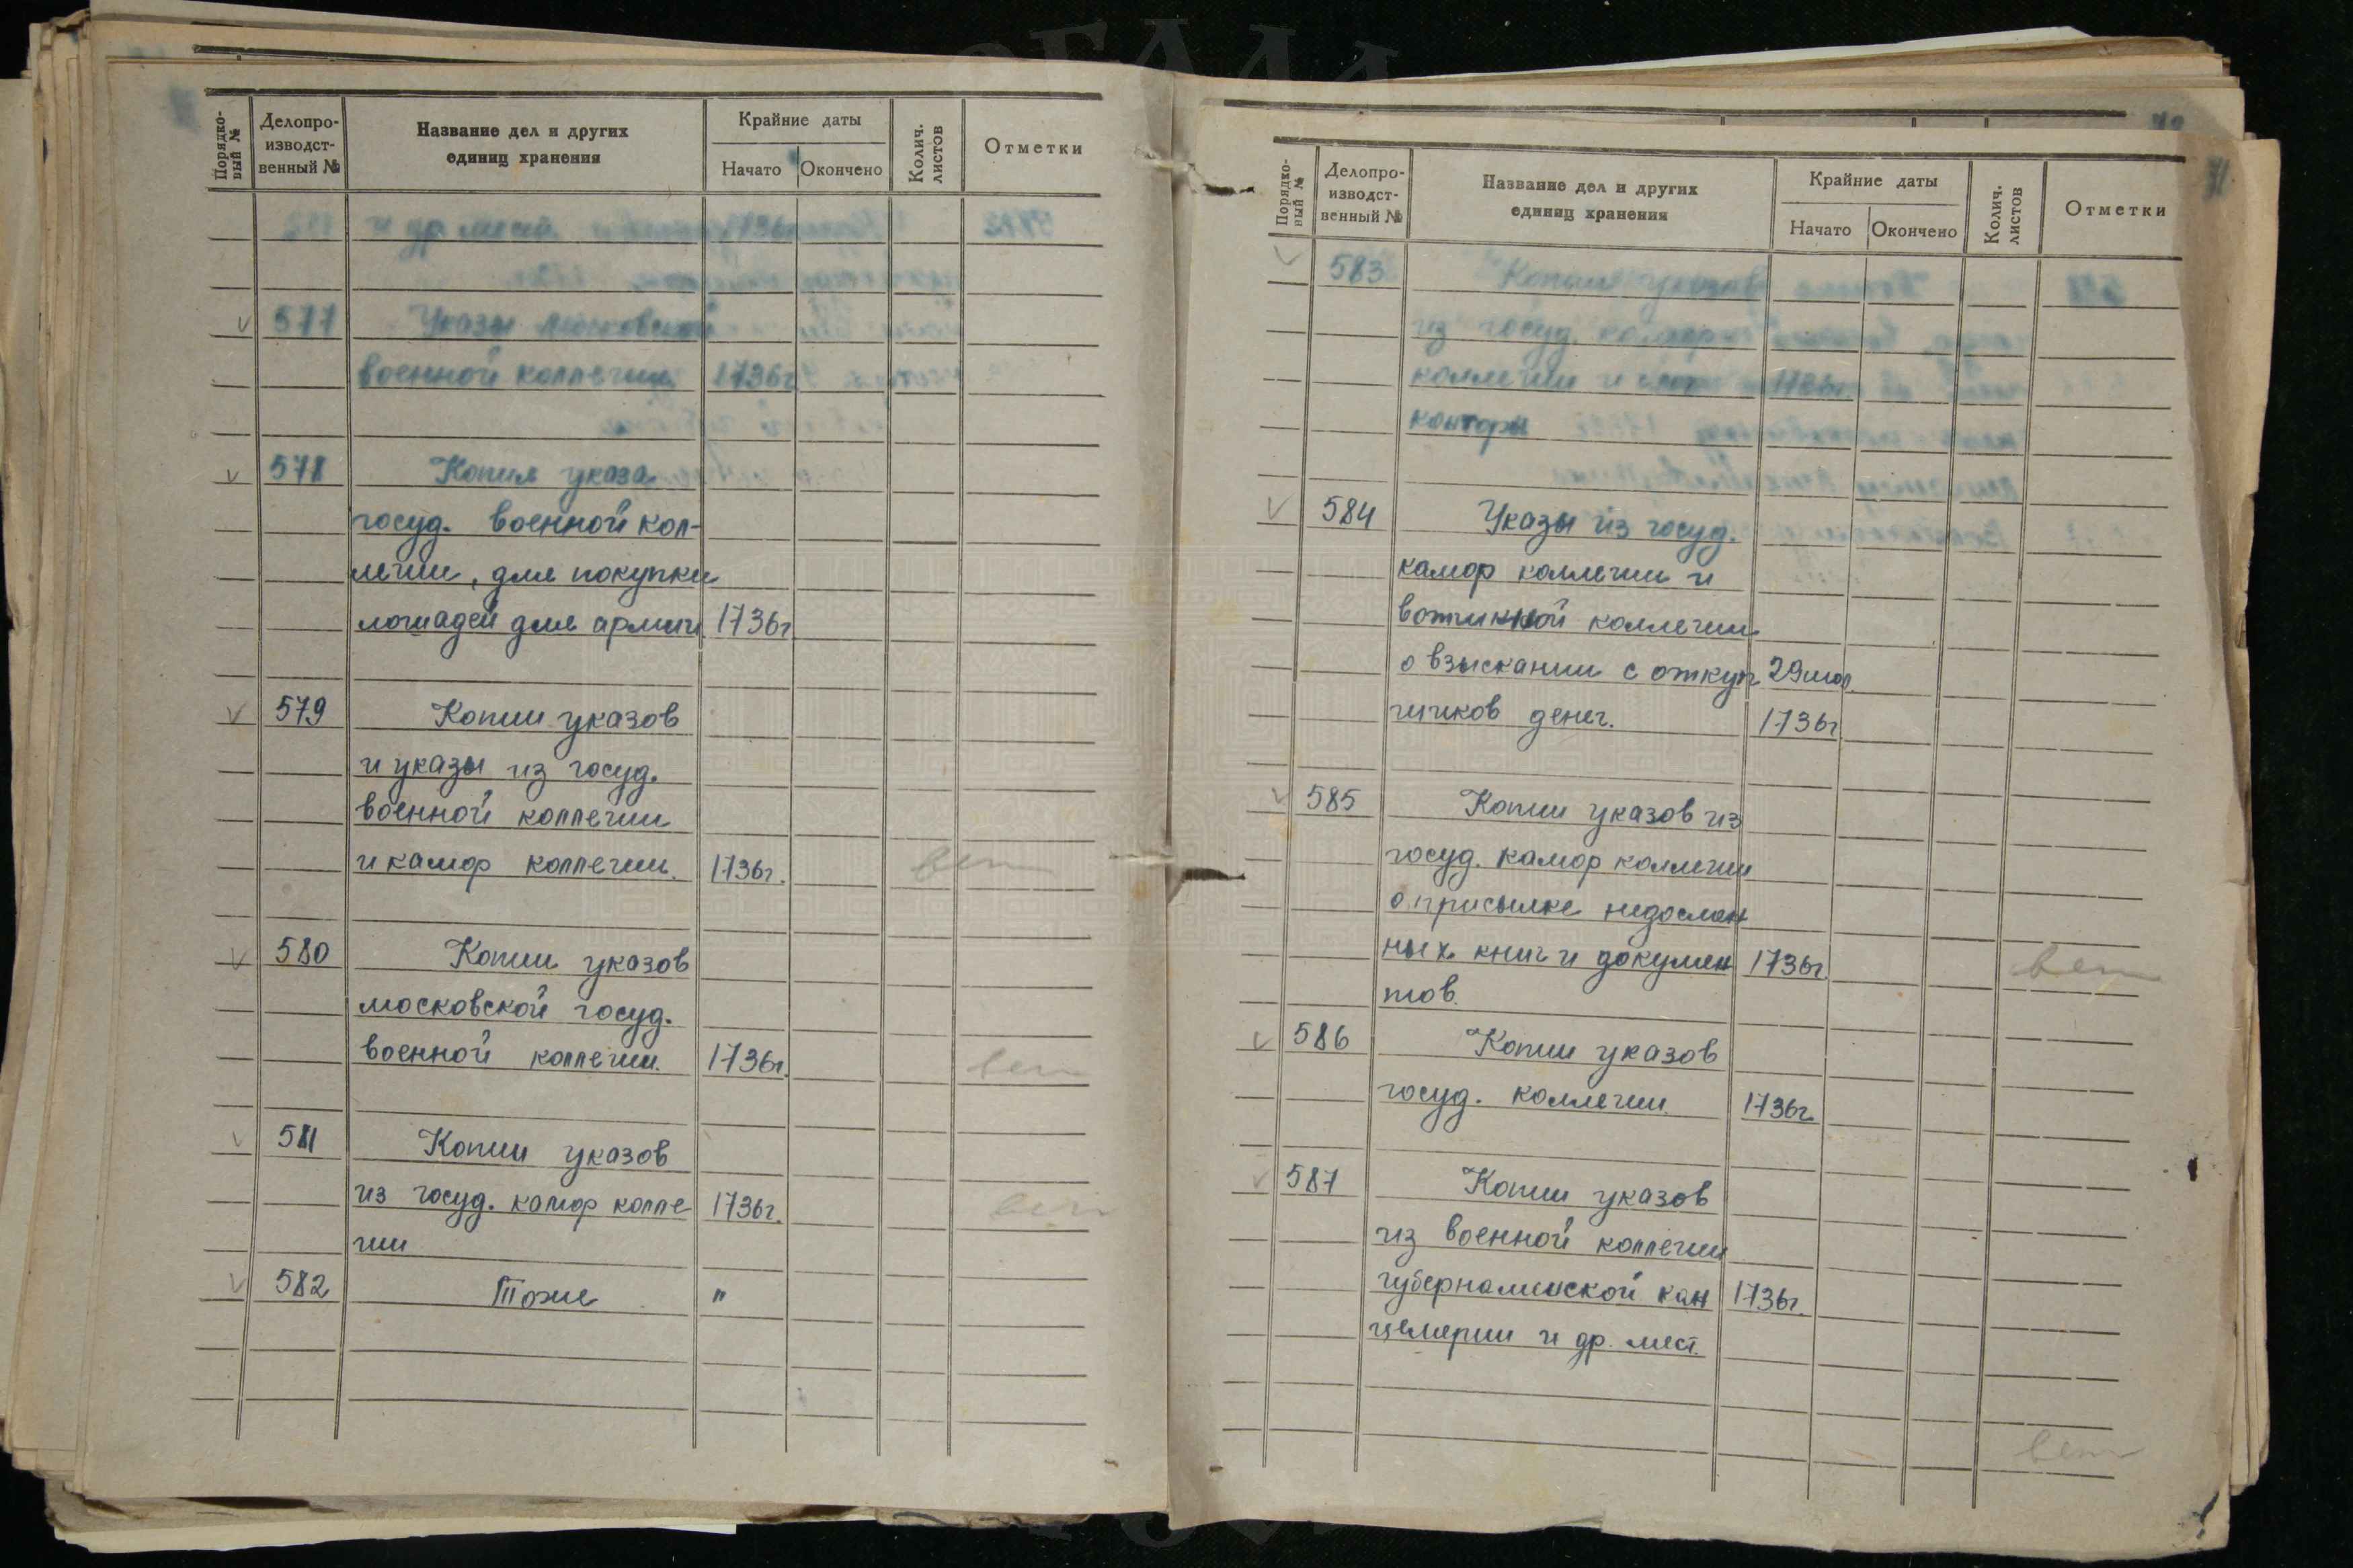 Порядко-
вый №
Делопро-
изводст-
венный №
Название дел и других
единиц хранения
Крайние даты
Начато
Окончено
Колич.
листов
Отметки
и др мест. 1736г
577 Указы московской
военной коллегии 1736г
578 Копия указа
госуд. военной кол-
легии, для покупки
лошадей для армии 1736г
579 Копии указов
и указы из госуд.
военной коллегии
и камор коллегии. 1736г.
вет
580 Копии указов
московской госуд.
военной коллегии. 1736г.
вет
581 Копии указов
из госуд. камор колле 1736г.
вет
гии
582 Тоже "
Порядко-
вый №
Делопро-
изводст-
венный №
Название дел и других
единиц хранения
Крайние даты
Начато
Окончено
Колич.
листов
Отметки
71
583 Копии указов
из госуд. камор
коллегии и 1736г
конторы
584 Указы из госуд.
камор коллегии и
вотчинной коллегии
о взыскании с откуп 29 июл.
щиков денег. 1736г
585 Копии указов из
госуд. камор коллегии
о присылке недослан
ных книг и докумен 1736г.
вет
тов.
586 Копии указов
госуд. коллегии. 1736г.
587 Копии указов
из военной коллегии
губернаменской кан 1736г.
целярии и др. мест.
вет